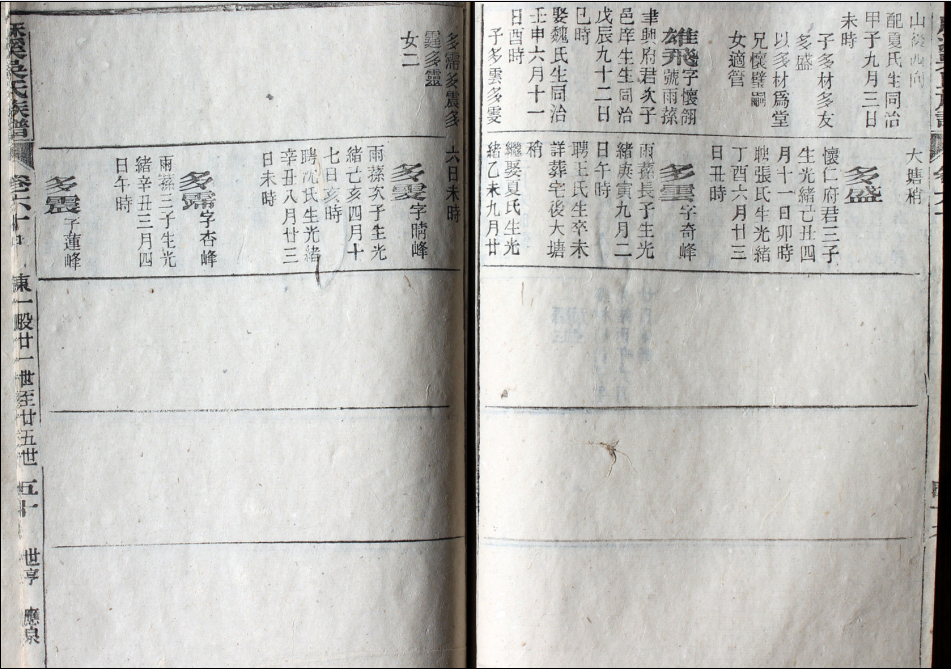 山癸丙向
配夏氏生同治
甲子九月三日
未時
子多材多友
多盛
以多材爲堂
兄懷璧嗣
女適管
雄飛字懷翎
號雨蓀
聿興府君次子
邑庠生生同治
戊辰九十二日
巳時
娶魏氏生同治
壬申六月十一
日酉時
子多雲多雯
大塘梢
多盛
懷仁府君三子
生光緒己丑四
月十一日卯時
聘張氏生光緒
丁酉六月廿三
日丑時
多雲字奇峰
雨蓀長子生光
緒庚寅九月二
日午時
聘王氏生卒未
詳葬宅後大塘
梢
繼娶夏氏生光
緒乙未九月廿
多霈多震多
霆多靈
女二
六日未時
多雯字晴峰
雨蓀次子生光
緒乙亥四月十
七日亥時
聘沈氏生光緒
辛丑八月廿三
日未時
多霈字杏峰
雨蓀三子生光
緒辛丑三月四
日午時
多震字蓮峰
吳氏族譜
卷六十
東一股廿一世至廿五世
五十
世亨
應泉